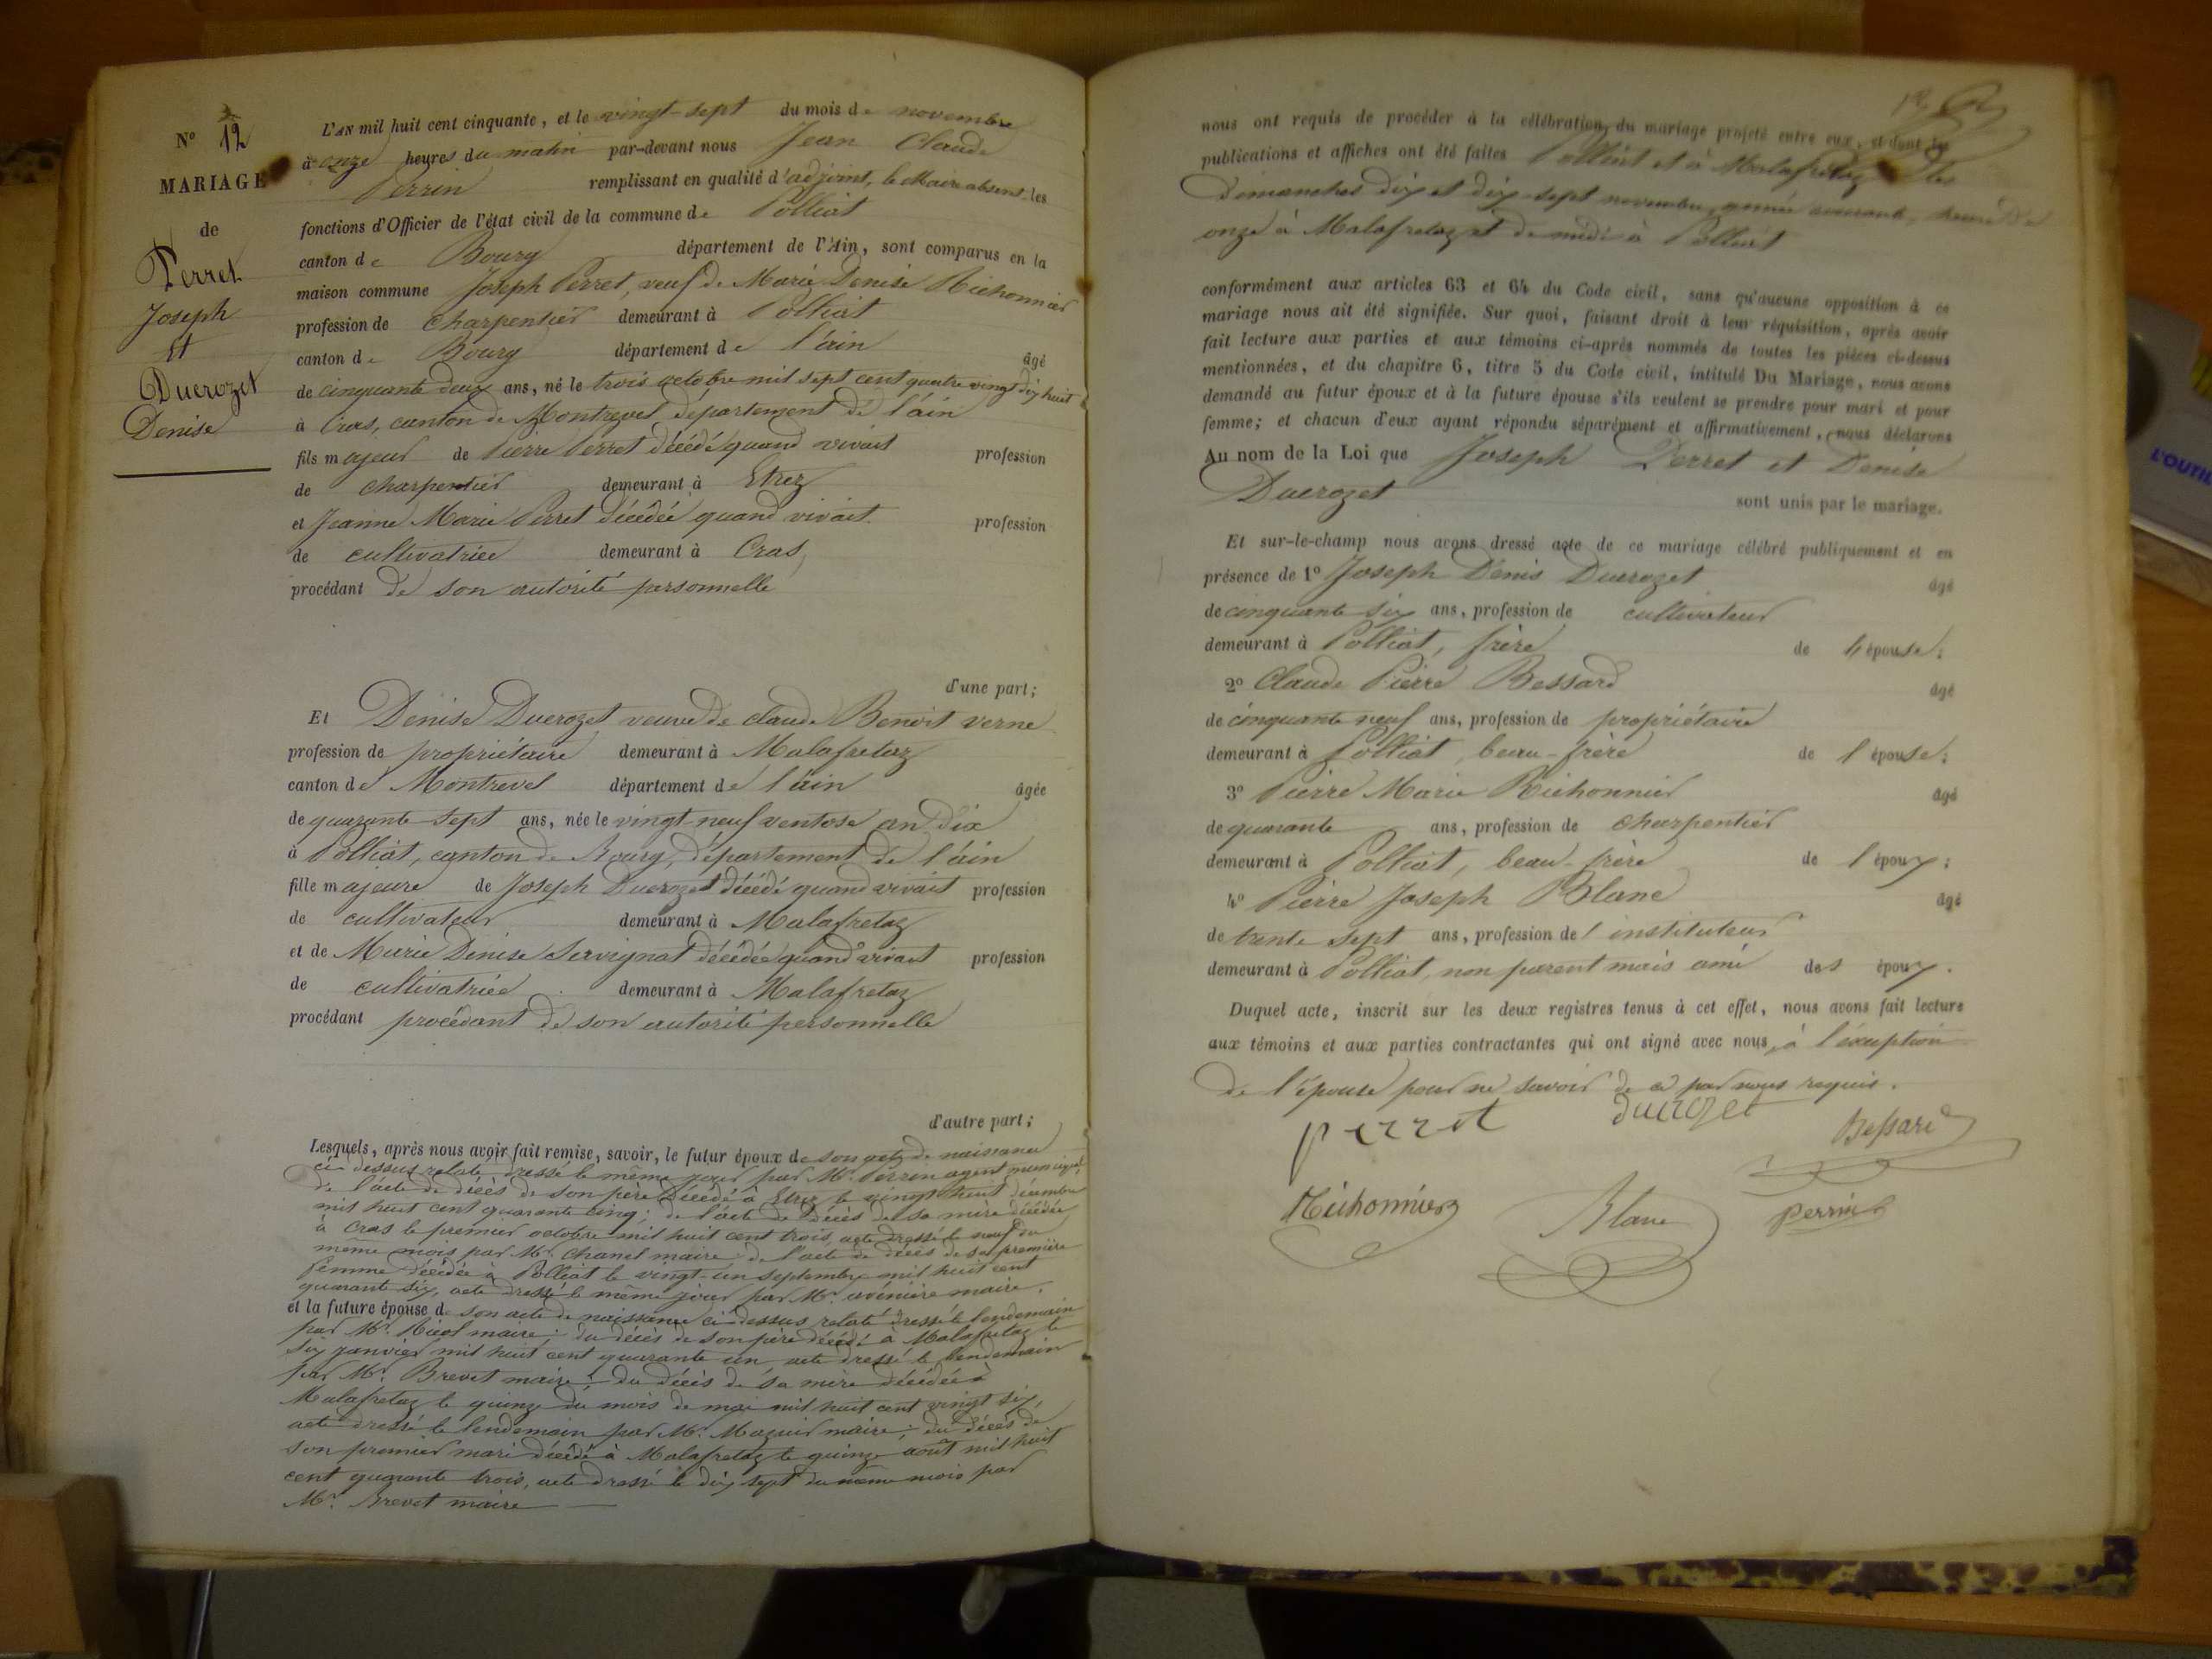 Nº 12
MARIAGE
de
Perret
Joseph
Et
Ducrozet
Denise
L'AN mil huit cent cinquante, et le vingt-sept du mois de novembre
à onze heures du matin par-devant nous Jean Claude
Perrin remplissant en qualité d'adjoint, le Maire absent les
fonctions d'Officier de l'état civil de la commune de Polliat
canton de Bourg département de l'Ain, sont comparus en la
maison commune Joseph Perret, veuf de Marie Denise Richonnier
profession de charpentier demeurant à Polliat
canton de Bourg département de l'ain âgé
de cinquante deux ans, né le trois octobre mil sept cent quatre vingt dix huit
à Cras, canton de Montrevel département de l'ain
fils majeur de Pierre Perret décédé quand vivait profession
de charpentier demeurant à Etrez
et Jeanne Marie Perret décédée quand vivait profession
de cultivatrice demeurant à Cras,
procédant de son autorité personnelle
d'une part;
Et Denise Ducrozet veuve de claude Benoit verne
profession de propriétaire demeurant à Malafretaz
canton de Montrevel département de l'ain âgée
de quarante sept ans, née le vingt-neuf ventose an dix
à Polliat, canton de Bourg, département de l'ain
fille majeure de Joseph Ducrozet décédé quand vivait profession
de cultivateur demeurant à Malafretaz
et de Marie Denise Servignat décédée quand vivait profession
de cultivatrice demeurant à Malafretaz
procédant procédant de son autorité personnelle
d'autre part;
Lesquels, après nous avoir fait remise, savoir, le futur époux de son acte de naissance
ci-dessus relaté dressé le même jour par Mr. Perrin agent municipal,
de l'acte de décès de son père décédé à Etrez le vingt huit décembre
mil huit cent quarante cinq; de l'acte de décès de sa mère décédée
à Cras le premier octobre mil huit cent trois, acte dressé le neuf du
même mois par Mr. Chanel maire de l'acte de décès de sa première
femme décédée à Polliat le vingt-un septembre mil huit cent
quarante six, acte dressé le même jour par Mr. maire.
et la future épouse de son acte de naissance ci-dessus relaté dressé le lendemain
par Mr. maire; du décès de son père décédé à Malafretaz le
six janvier mil huit cent quarante un acte dressé le lendemain
par Mr. Brevet maire; du décès de sa mère décédée à
Malafretaz le quinze du mois de mai mil huit cent vingt six,
acte dressé le lendemain par Mr. maire; du décès de
son premier mari décédé à Malafretaz le quinze août mil huit
cent quarante trois, acte dressé le dix sept du même mois par
Mr. Brevet maire
nous ont requis de procéder à la célébration du mariage projeté entre eux, et dont les
publications et affiches ont été faites Polliat et à Malafretaz les
Dimanches dix et dix-sept novembre, année courante, heure d'
onze à Malafretaz et de midi à Polliat
conformément aux articles 63 et 64 du Code civil, sans qu'aucune opposition à ce
mariage nous ait été signifiée. Sur quoi, faisant droit à leur réquisition, après avoir
fait lecture aux parties et aux témoins ci-après nommés de toutes les pièces ci-dessus
mentionnées, et du chapitre 6, titre 5 du Code civil, intitulé Du Mariage, nous avons
demandé au futur époux et à la future épouse s'ils veulent se prendre pour mari et pour
femme; et chacun d'eux ayant répondu séparément et affirmativement, nous déclarons
Au nom de la Loi que Joseph Perret et Denise
Ducrozet sont unis par le mariage.
Et sur-le-champ nous avons dressé acte de ce mariage célébré publiquement et en
présence de 1º Joseph Denis Ducrozet âgé
de cinquante six ans, profession de cultivateur
demeurant à Polliat, frère de l'épouse;
2º Claude Pierre Bessard âgé
de cinquante neuf ans, profession de propriétaire
demeurant à Polliat, beau-frère de l'épouse;
3º Pierre Marie Richonnier âgé
de quarante ans, profession de charpentier
demeurant à Polliat, beau-frère de l'époux;
4º Pierre Joseph Blanc âgé
de trente sept ans, profession d'instituteur
demeurant à Polliat, non parent mais ami des époux.
Duquel acte, inscrit sur les deux registres tenus à cet effet, nous avons fait lecture
aux témoins et aux parties contractantes qui ont signé avec nous, à l'exception
de l'épouse pour ne savoir de ce par nous requis.
perret ducrozet Bessard
Richonnier Blanc perrin
L'OUTIL